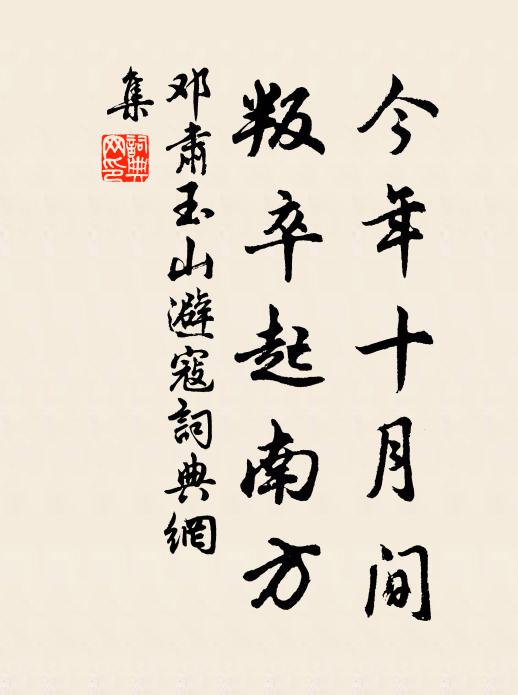 今年十月间
叛卒起南方
邓肃玉山避寇詞典網
集
詞典網印